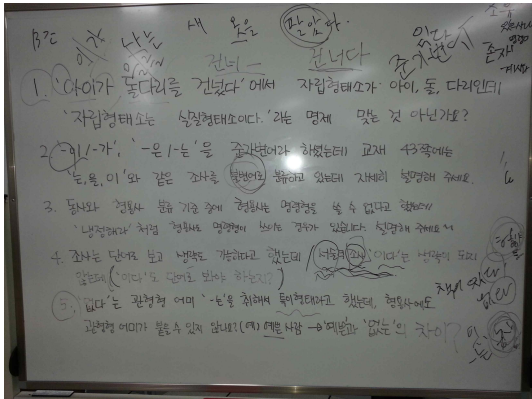 새 옷을 팔았다.
1. '아이가 돌다리를 건넜다'에서 자립형태소가 아이, 돌, 다리인데
'자립형태소는 실질형태소이다.'라는 명제 맞는 것 아닌가요?
2. '-이/-가', '-은/-는'을 준자변어라 하였는데 교재 43쪽에는
'는, 을, 이'와 같은 조사를 불변어로 분류하고 있는데 자세히 설명해 주세요.
3. 동사와 형용사 분류 기준 중에 형용사는 명령형을 쓸 수 없다고 했는데
'냉정해라'처럼 형용사도 명령형이 쓰이는 경우가 있습니다. 설명해 주세요
4. 조사는 단어로 보고 생략도 가능하다고 했는데 서술격 조사 '이다'는 생략이 되지
않는데 ('이다'도 단어로 봐야 하는지?)
5. '없다'는 관형형 어미 '-는'을 취해서 특이형태라고 했는데, 형용사에도
관형형 어미가 붙을 수 있지 않나요? (예) 예쁜 사람 → '예쁜'과 '없는'의 차이?
건너
건너다
있다
존재
없다